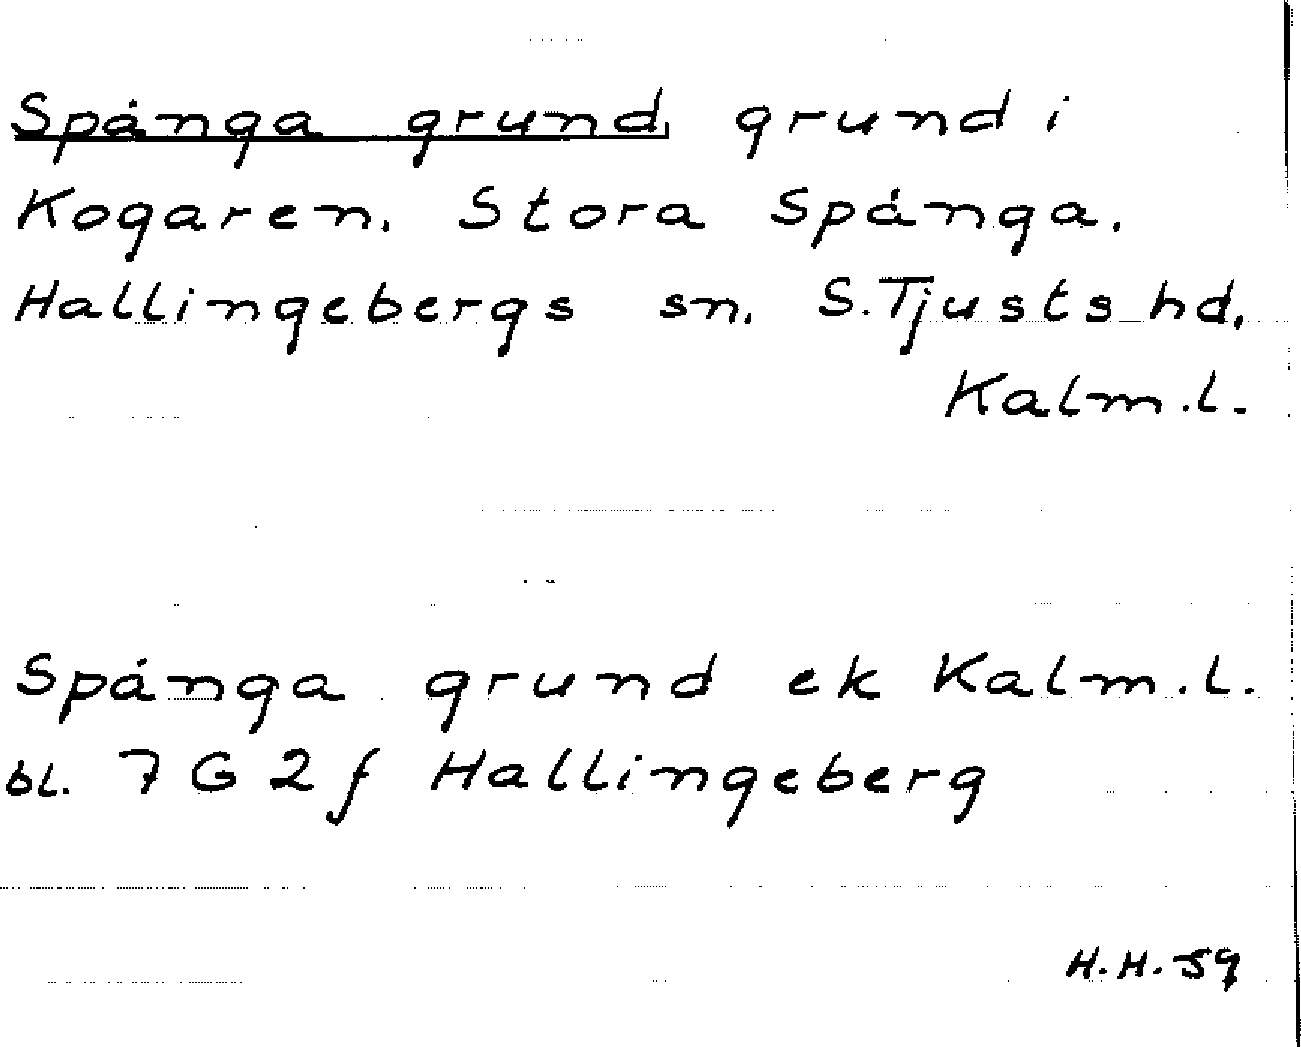 Spånga grund, grund i
Kogaren. Stora Spånga.
Hallingebergs sn. S.Tjusts hd.
Kalm.l.
Spånga grund ek Kalm.l.
bl. 7 G 2 f Hallingeberg
H.H. 59